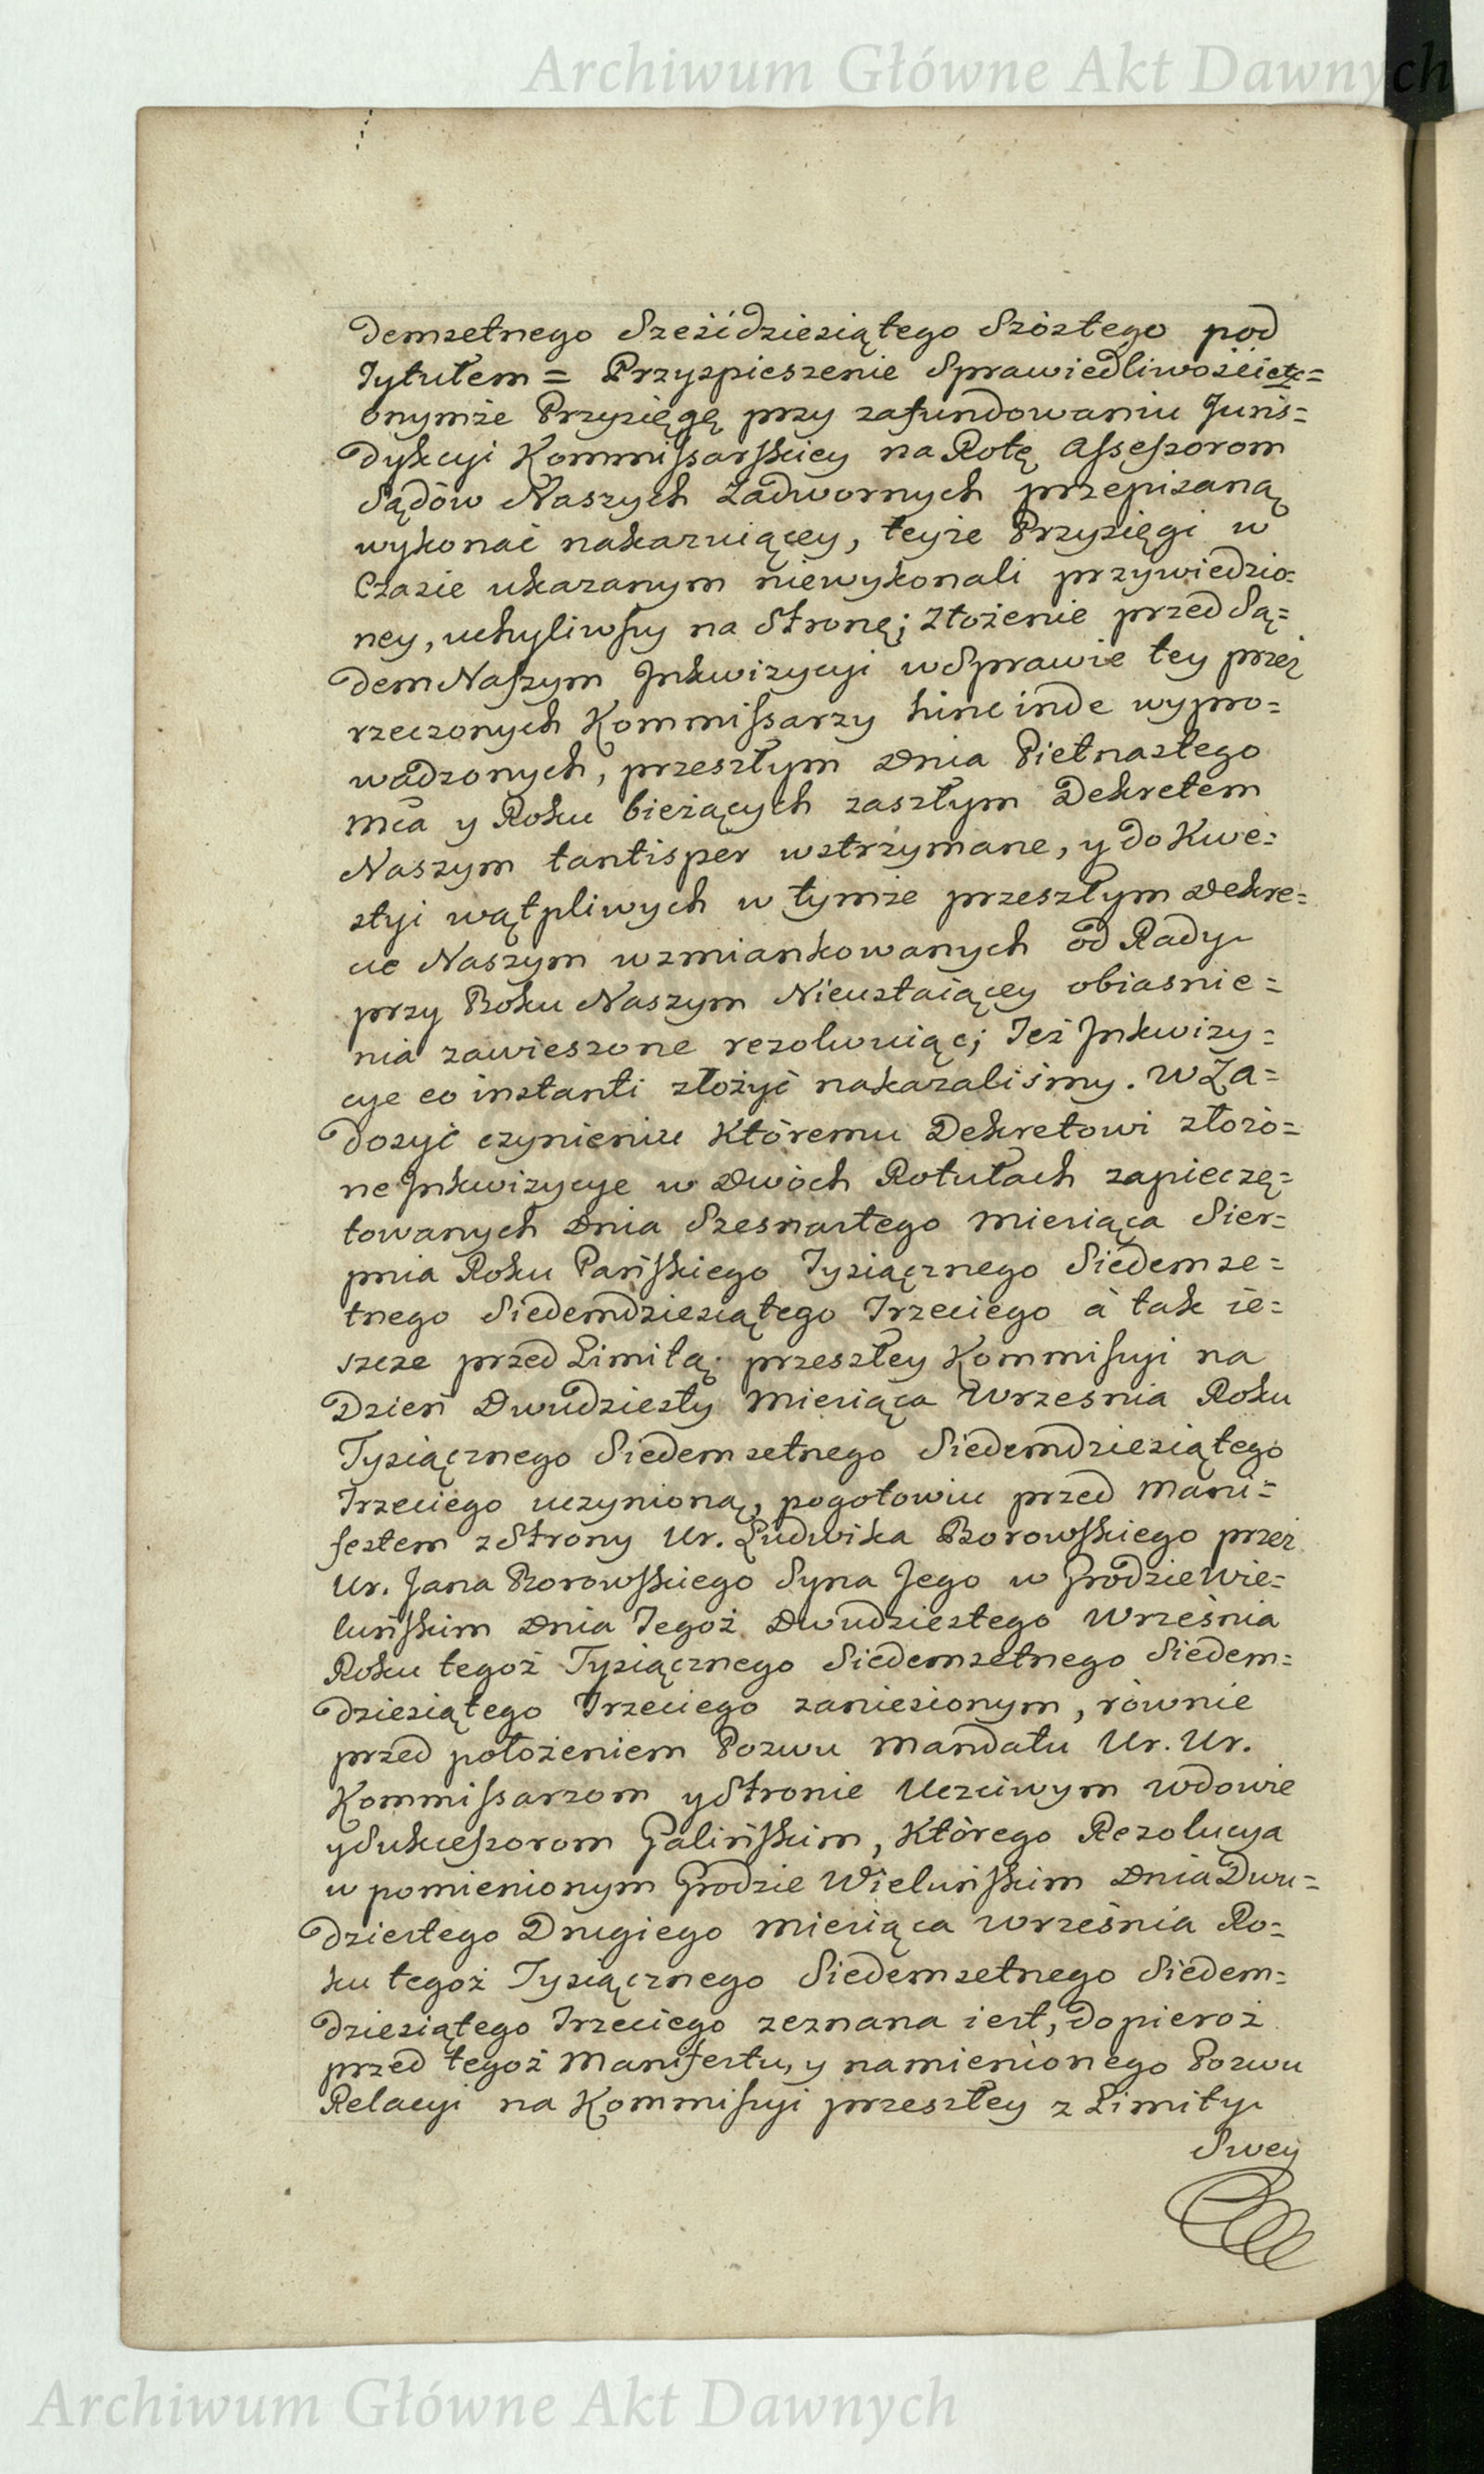 Archiwum Główne Akt Dawnych
demsetnego Sześćdziesiątego Szóstego pod
Tytułem = Przyspieszenie Sprawiedliwości etc =
onymże Przysięgę przy zafundowaniu Juris=
dykcyi Kommissarskiey na Rotę Assessorom
Sądów Naszych Zadwornych przepisaną
wykonać nakazuiącey, teyże Przysięgi w
Czasie ukazanym niewykonali przywiedzio=
ney, uchyliwszy na Stronę; Złożenie przed Są=
dem Naszym Inkwizycyi w Sprawie tey przez
rzeczonych Kommissarzy hinc inde wypro=
wadzonych, przeszłym Dnia Pietnastego
mca y Roku bieżących zaszłym Dekretem
Naszym tantisper wstrzymane, y do Kwe=
styi wątpliwych w tymże przeszłym Dekre=
cie Naszym wzmiankowanych od Rady
przy Boku Naszym Nieustaiącey obiasnie=
nia zawieszone rezolwuiąc; Też Inkwizy=
cye eo instanti złożyć nakazaliśmy. W Za=
dosyć czynieniu Któremu Dekretowi złożo=
ne Inkwizycye w Dwóch Rotułach zapieczę=
towanych Dnia Szesnastego Miesiąca Sier=
pnia Roku Pańskiego Tysiącznego Siedemse=
tnego Siedemdziesiątego Trzeciego à tak ie=
szcze przed Limitą przeszłey Kommissyi na
Dzień Dwudziesty Miesiąca Września Roku
Tysiącznego Siedemsetnego Siedemdziesiątego
Trzeciego uczynioną, pogotowiu przed Mani=
festem z Strony Ur. Ludwika Borowskiego przez
Ur. Jana Borowskiego Syna Jego w Grodzie Wie=
luńskim Dnia Tegoż Dwudziestego Września
Roku tegoż Tysiącznego Siedemsetnego Siedem=
dziesiątego Trzeciego zaniesionym, równie
przed położeniem Pozwu Mandatu Ur. Ur.
Kommissarzom y Stronie Uczciwym Wdowie
y Sukcessorom Galińskim, Którego Rezolucya
w pomienionym Grodzie Wieluńskim Dnia Dwu=
dziestego Drugiego Miesiąca Września Ro=
ku tegoż Tysiącznego Siedemsetnego Siedem=
dziesiątego Trzeciego zeznana iest, dopieroż
przed tegoż Manifestu, y namienionego Pozwu
Relacyi na Kommissyi przeszłey z Limity
Swey
Archiwum Główne Akt Dawnych